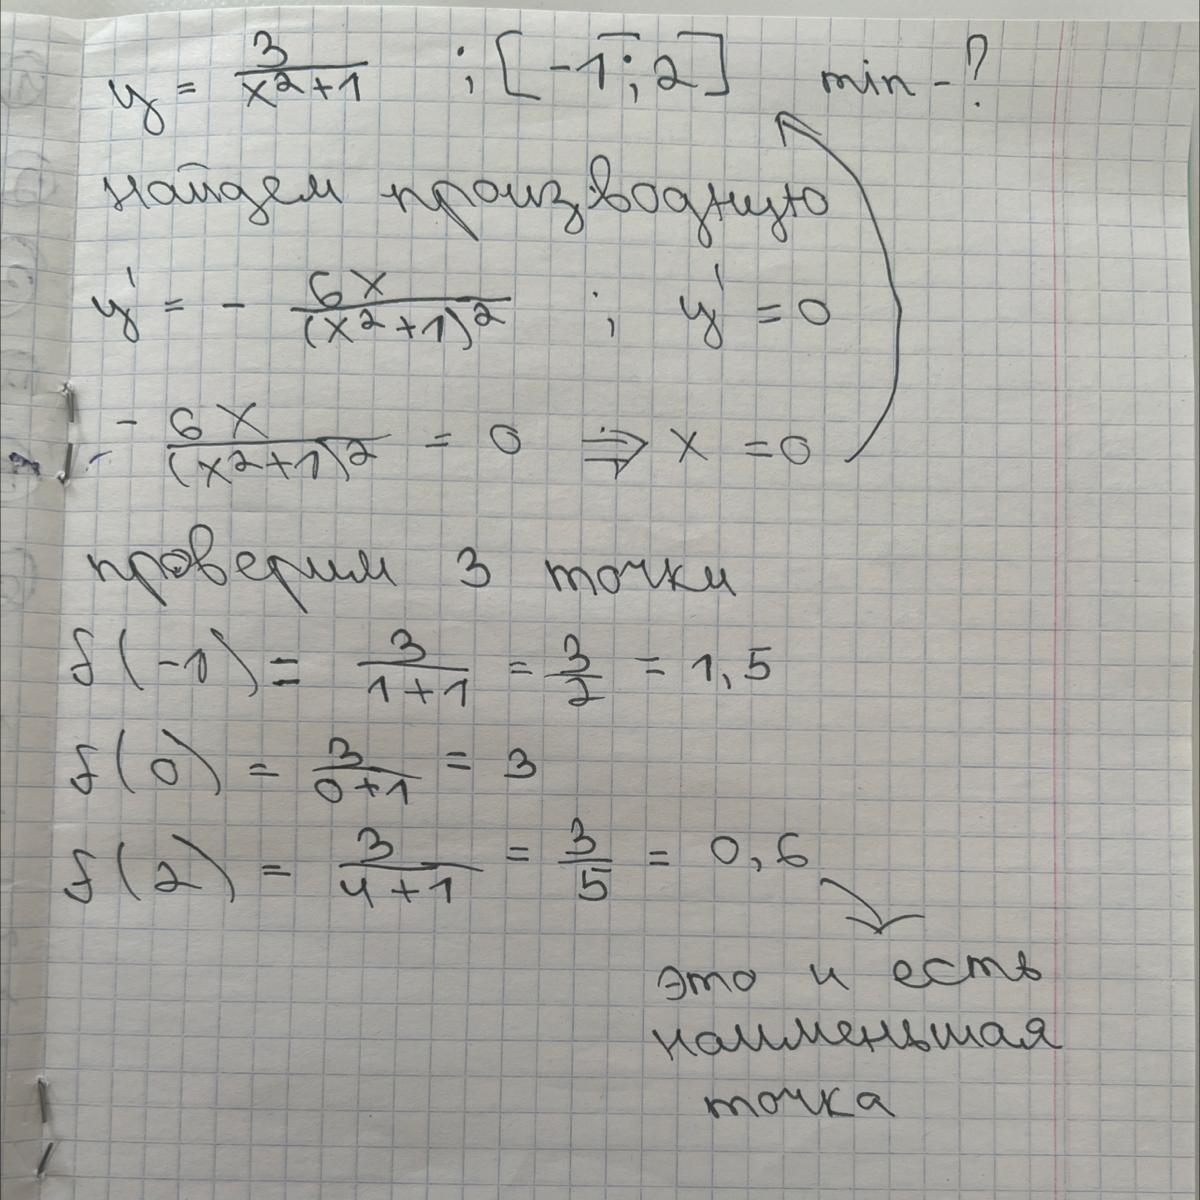 y = 3/(x²+1) ; [-1; 2] min - ?
найдем производную
y' = - 6x/(x²+1)² ; y' = 0
- 6x/(x²+1)² = 0 ⇒ x = 0
проверим 3 точки
f(-1) = 3/(1+1) = 3/2 = 1,5
f(0) = 3/(0+1) = 3
f(2) = 3/(4+1) = 3/5 = 0,6
это и есть
наименьшая
точка